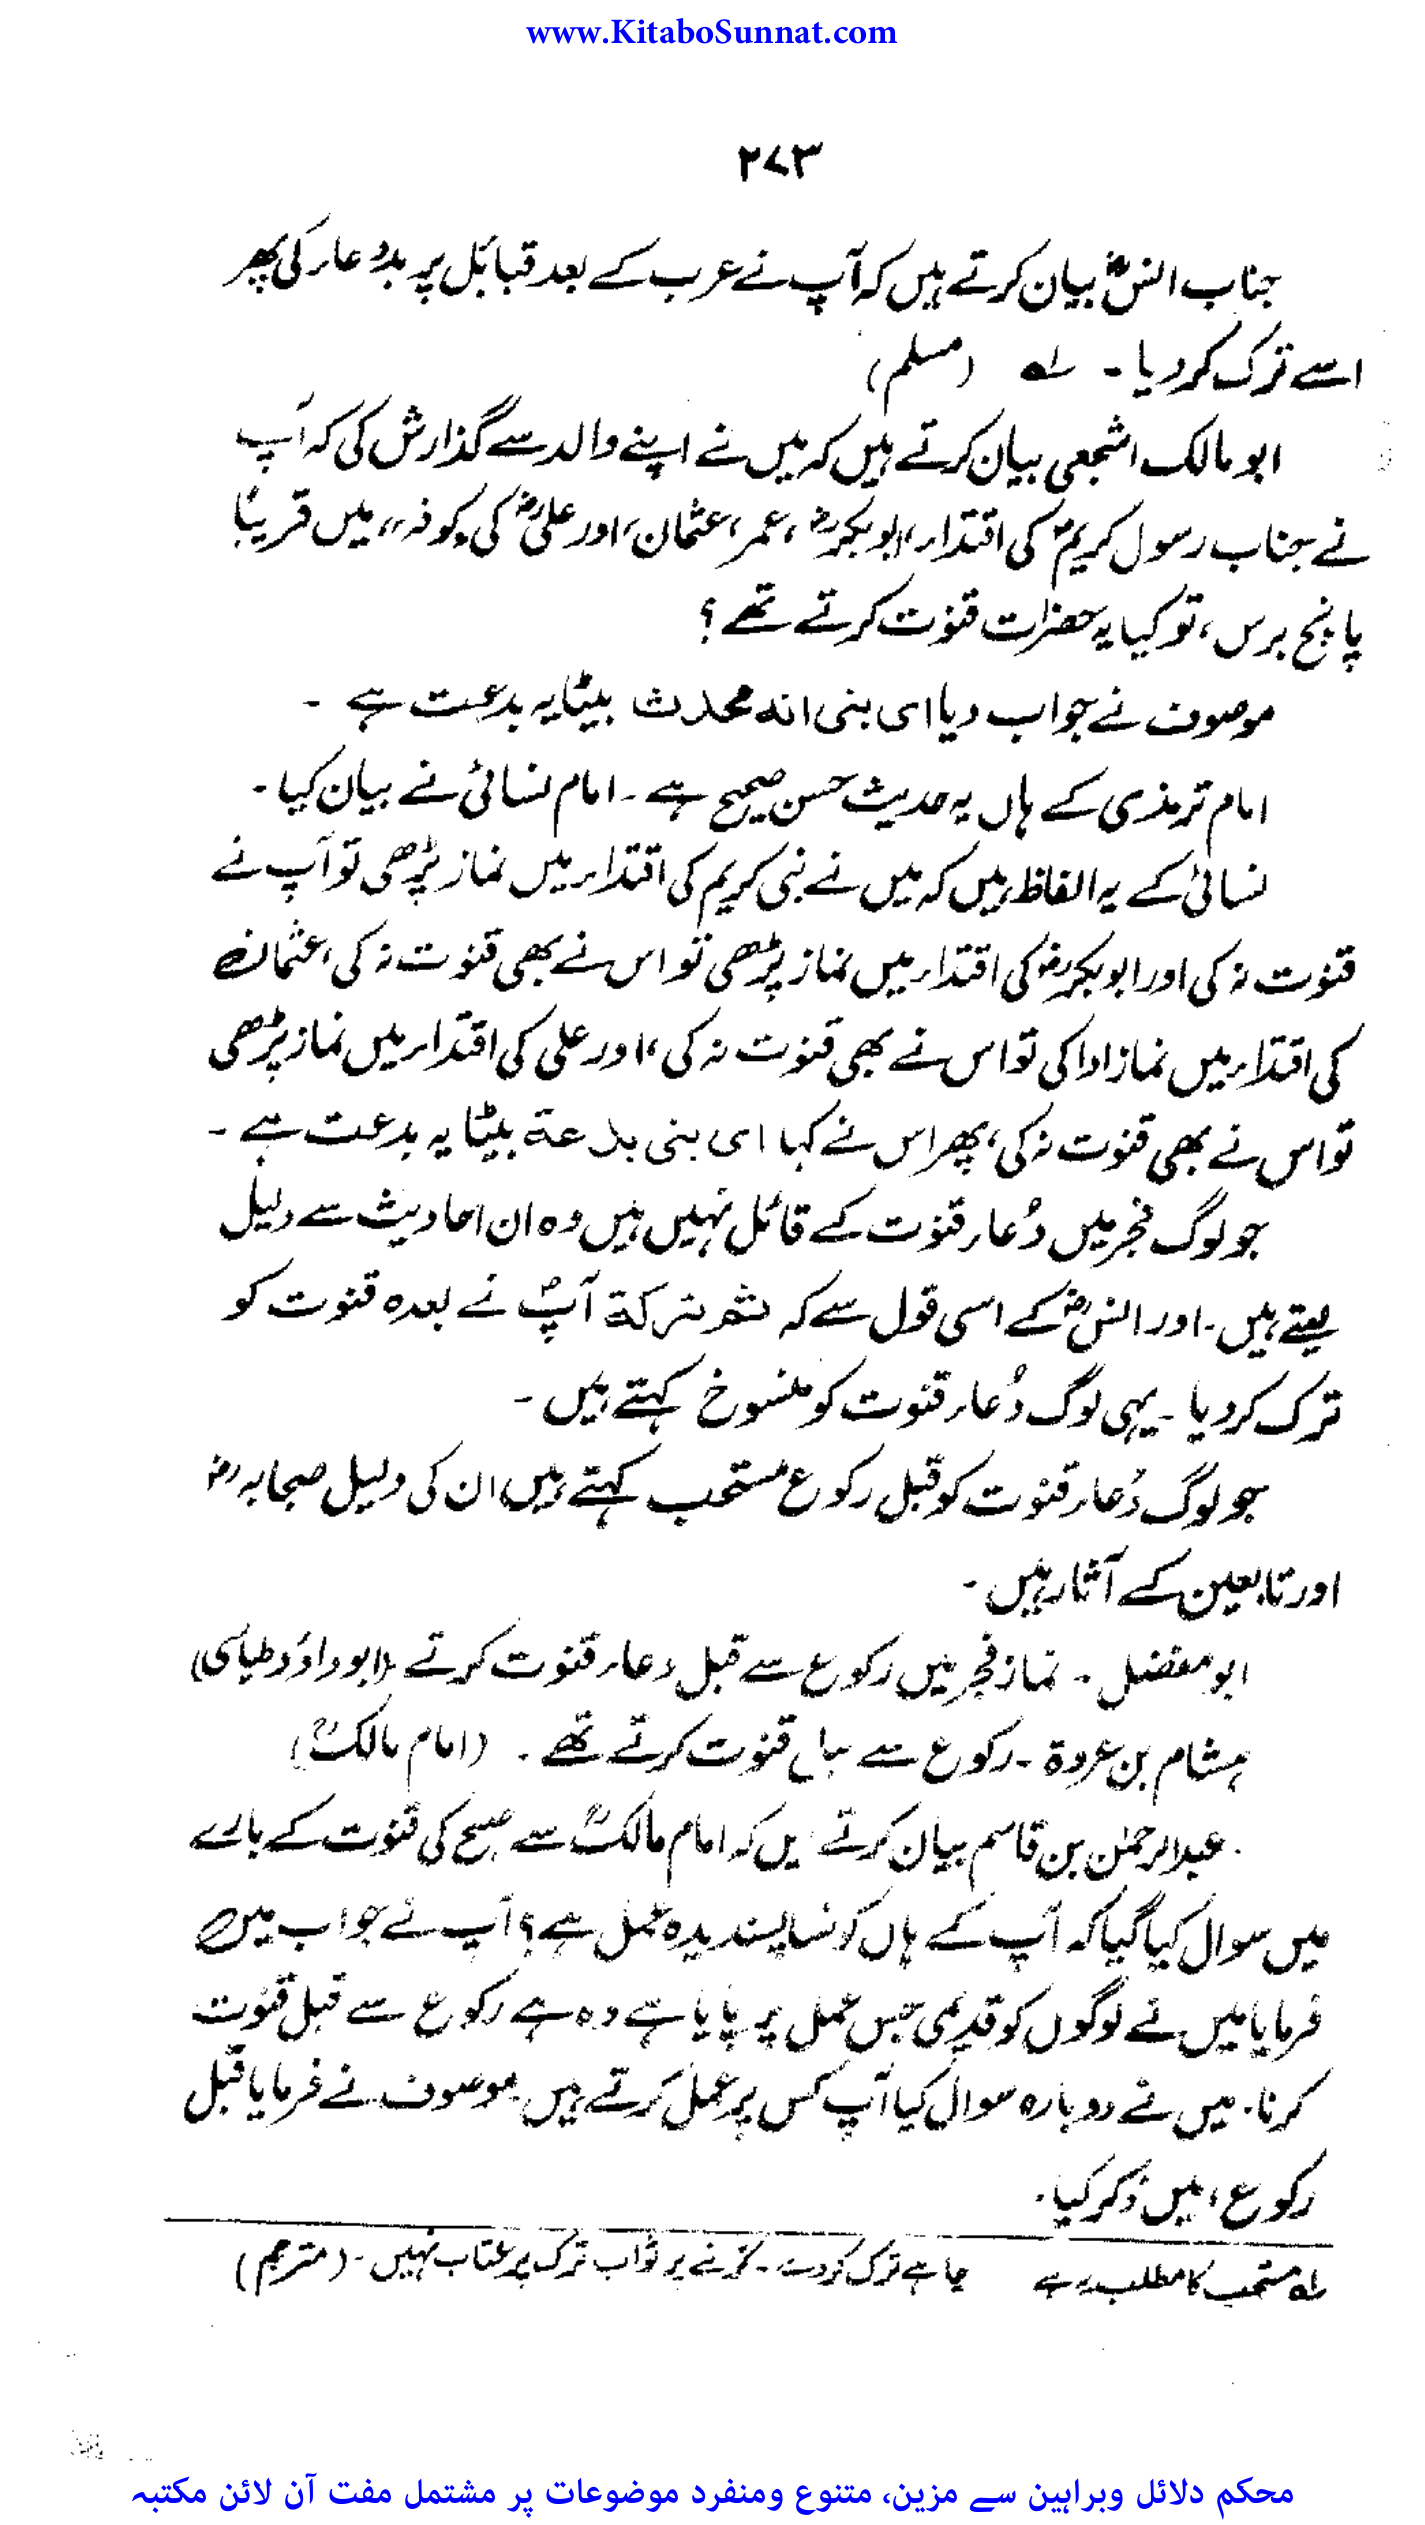 www.KitaboSunnat.com
۲۷۳
جناب انسؓ بیان کرتے ہیں کہ آپ نے عرب کے بعد قبائل پر بددعاء کی پھر
اسے ترک کر دیا ۔ لہ (مسلم)
ابو مالک اشجعی بیان کرتے ہیں کہ میں نے اپنے والد سے گذارش کی کہ آپ
نے جناب رسول کریمؐ کی اقتداء، ابوبکرؓ، عمر، عثمان، اور علیؓ کی "کوفہ" میں قریباً
پانچ برس، تو کیا یہ حضرات قنوت کرتے تھے؟
موصوف نے جواب دیا ای بنی انه محدث بیٹا یہ بدعت ہے ۔
امام ترمذی کے ہاں یہ حدیث حسن صحیح ہے ۔ امام نسائی نے بیان کیا ۔
نسائی کے یہ الفاظ ہیں کہ میں نے نبی کریم کی اقتداء میں نماز پڑھی تو آپ نے
قنوت نہ کی اور ابوبکرؓ کی اقتداء میں نماز پڑھی تو اس نے بھی قنوت نہ کی، عثمانؓ
کی اقتداء میں نماز ادا کی تو اس نے بھی قنوت نہ کی، اور علی کی اقتداء میں نماز پڑھی
تو اس نے بھی قنوت نہ کی، پھر اس نے کہا ای بنی بدعة بیٹا یہ بدعت ہے ۔
جو لوگ فجر میں دُعاء قنوت کے قائل نہیں ہیں وہ ان احادیث سے دلیل
لیتے ہیں ۔ اور انسؓ کے اسی قول سے کہ ثم تركة آپؐ نے بعدہ قنوت کو
ترک کر دیا ۔ یہی لوگ دُعاء قنوت کو منسوخ کہتے ہیں ۔
جو لوگ دُعاء قنوت کو قبل رکوع مستحب کہتے ہیں ان کی دلیل صحابہؓ
اور تابعین کے آثار ہیں ۔
ابو مفضل ۔ نماز فجر میں رکوع سے قبل دعاء قنوت کرتے (ابوداؤد طیالسی)
ہشام بن عروة ۔ رکوع سے قنوت کرتے تھے ۔ (امام مالکؒ)
عبدالرحمٰن بن قاسم بیان کرتے ہیں کہ امام مالکؒ سے صبح کی قنوت کے بارے
میں سوال کیا گیا کہ آپ کے ہاں کونسا پسندیدہ عمل ہے؟ آپ نے جواب میں
فرمایا میں نے لوگوں کو قدیمی جس عمل پر پایا ہے وہ ہے رکوع سے قبل قنوت
کرنا ۔ میں نے دوبارہ سوال کیا آپ کس پر عمل کرتے ہیں موصوف نے فرمایا قبل
رکوع، میں ذکر کیا ۔
لہ مستحب کا مطلب یہ ہے چاہے ترک کر دے ۔ کرنے پر ثواب ترک پر عتاب نہیں ۔ (مترجم)
محکم دلائل وبراہین سے مزین، متنوع ومنفرد موضوعات پر مشتمل مفت آن لائن مکتبہ